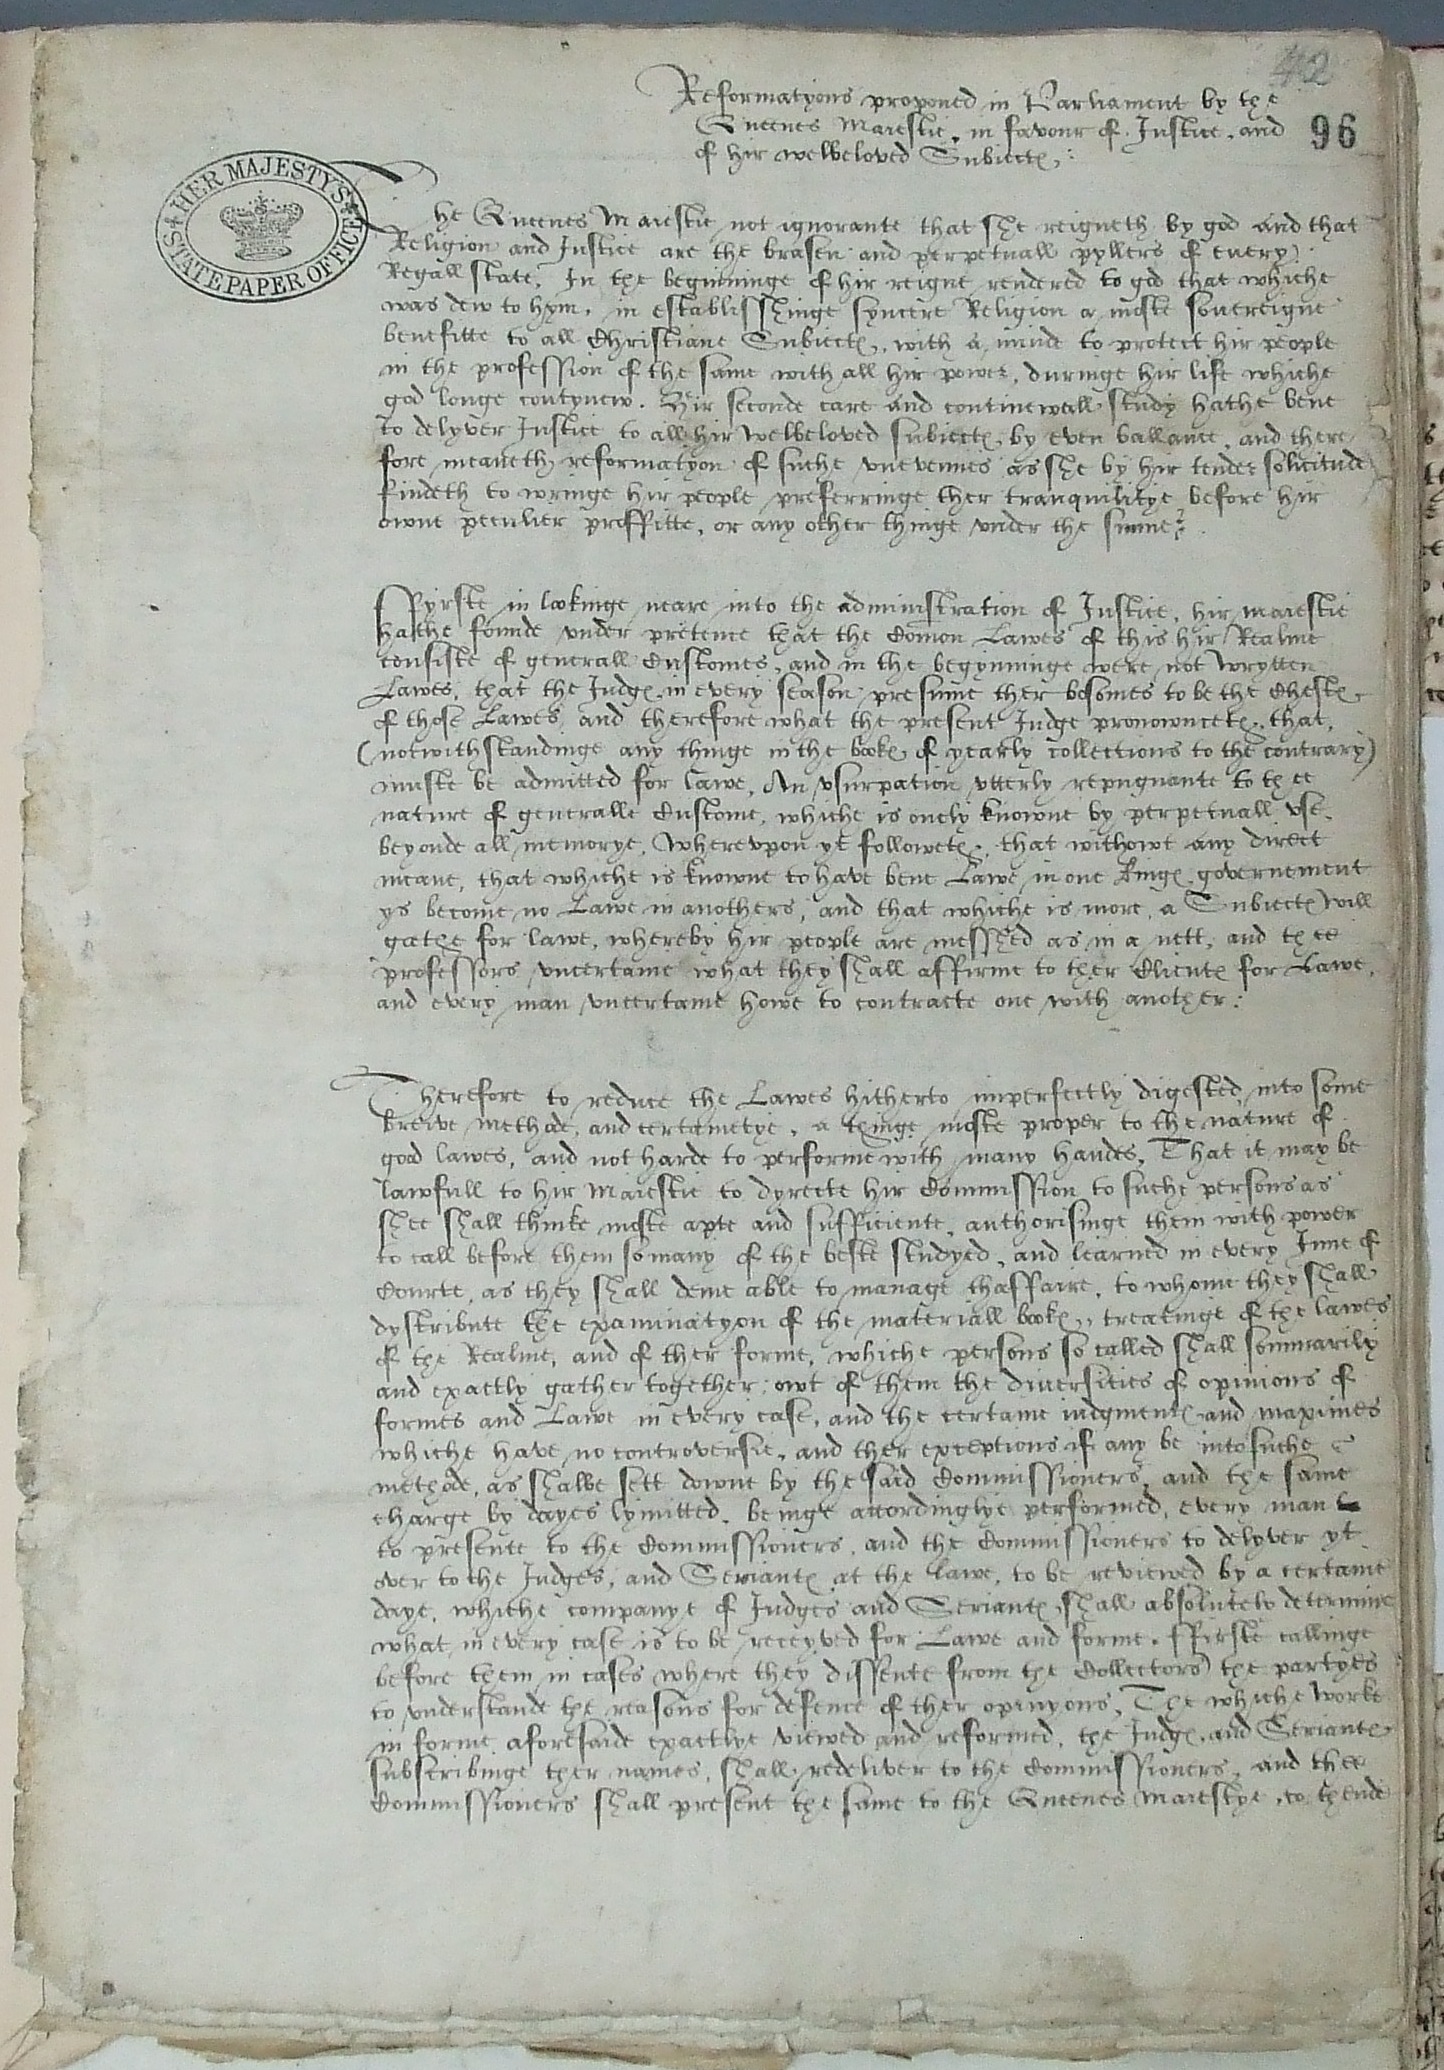 42
Reformatyons proponed in Parliament by the
Queenes Maiestie, in favour of Justice, and
of hir welbeloved Subiectes:
96
HER MAJESTY'S STATE PAPER OFFICE
The Queenes Maiestie not ignorante that she reigneth by god and that
Religion and Justice are the brasen and perpetuall pyllers of every
Regall state, In the beginninge of hir reigne rendered to god that whiche
was dew to hym, in establisshinge syncere Religion a moste sovereigne
benefitte to all Christiane Subiectes, with a minde to protect hir people
in the profession of the same with all hir power, duringe hir life whiche
god longe contynew. Hir seconde care and continewall study hathe bene
to delyver Justice to all hir welbeloved subiectes by even ballance, and there
fore meaneth reformatyon of suche unevennes as she by hir tender solicitude
findeth to wringe hir people preferringe ther tranquilitye before hir
owne peculier proffitte, or any other thinge under the sunne.
Fyrste in lookinge neare into the administration of Justice, hir maiestie
hathe founde under pretence that the Comon Lawes of this hir Realme
consiste of generall Customes, and in the begynninge were not wrytten
Lawes, that the Judges in every season presume ther bosomes to be the Chestes
of those Lawes, and therefore what the present Judge pronowncethe, that,
(notwithstandinge any thinge in the bookes of yearly collections to the contrary)
muste be admitted for lawe, An usurpation utterly repugnante to thee
nature of generalle Custome, whiche is onely knowne by perpetuall use
beyonde all memorye, Whereupon yt followethe, that withowt any direct
meane, that whiche is knowne to have bene Lawe in one Kinges governement
ys become no Lawe in anothers, and that whiche is more, a Subiectes will
goethe for lawe, whereby hir people are messhed as in a nett, and thee
professors uncertaine what they shall affirme to ther Clientes for Lawe,
and every man uncertaine howe to contracte one with another:
Therefore to reduce the Lawes hitherto imperfectly digested into some
breive methode, and certainetye, a thinge moste proper to the nature of
good lawes, and not harde to performe with many handes, That it may be
lawfull to hir Maiestie to dyrecte hir Commission to suche persons as
shee shall thinke moste apte and sufficiente, authorisinge them with power
to call before them so many of the beste studyed, and learned in every Inne of
Courte, as they shall deme able to manage thaffaire, to whome they shall
dystribute the examinatyon of the materiall bookes, treatinge of the lawes
of the Realme, and of ther forme, whiche persons so called shall sommarily
and exactly gather together owt of them the diversities of opinions of
formes and Lawe in every case, and the certaine iudgmentes and maximes
whiche have no controversie, and ther exceptions if any be into suche
methode, as shalbe sett downe by the said Commissioners, and the same
charge by dayes lymitted, beinge accordinglye performed, every man
to presente to the Commissioners, and the Commissioners to delyver yt
over to the Judges, and Seriantes at the lawe, to be reviewed by a certaine
daye, whiche companye of Judges and Seriantes shall absolutely determine
what in every case is to be receyved for Lawe and forme. Firste callinge
before them in cases where they dissente from the Collectors the partyes
to understande the reasons for defence of ther opinyons, The whiche worke
in forme aforesaide exactlye viewed and reformed, the Judges and Seriantes
subscribinge ther names, shall redeliver to the Commissioners, and thee
Commissioners shall present the same to the Queenes Maiestye, to thende